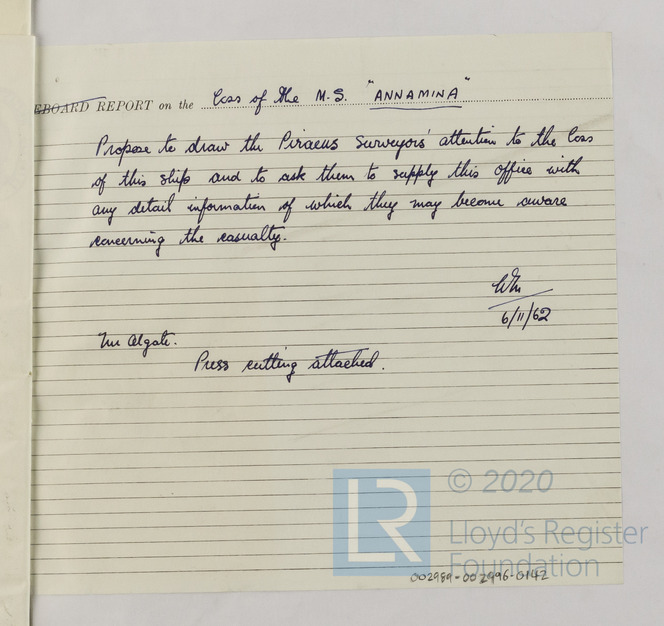 EBOARD REPORT on the Loss of the M.S. "ANNAMINA"
Propose to draw the Piraeus Surveyors' attention to the loss
of this ship and to ask them to supply this office with
any detail information of which they may become aware
concerning the casualty.
6/11/62
Mr Algate.
Press cutting attached.
LR
© 2020
Lloyd's Register
Foundation
002989-002996-0142